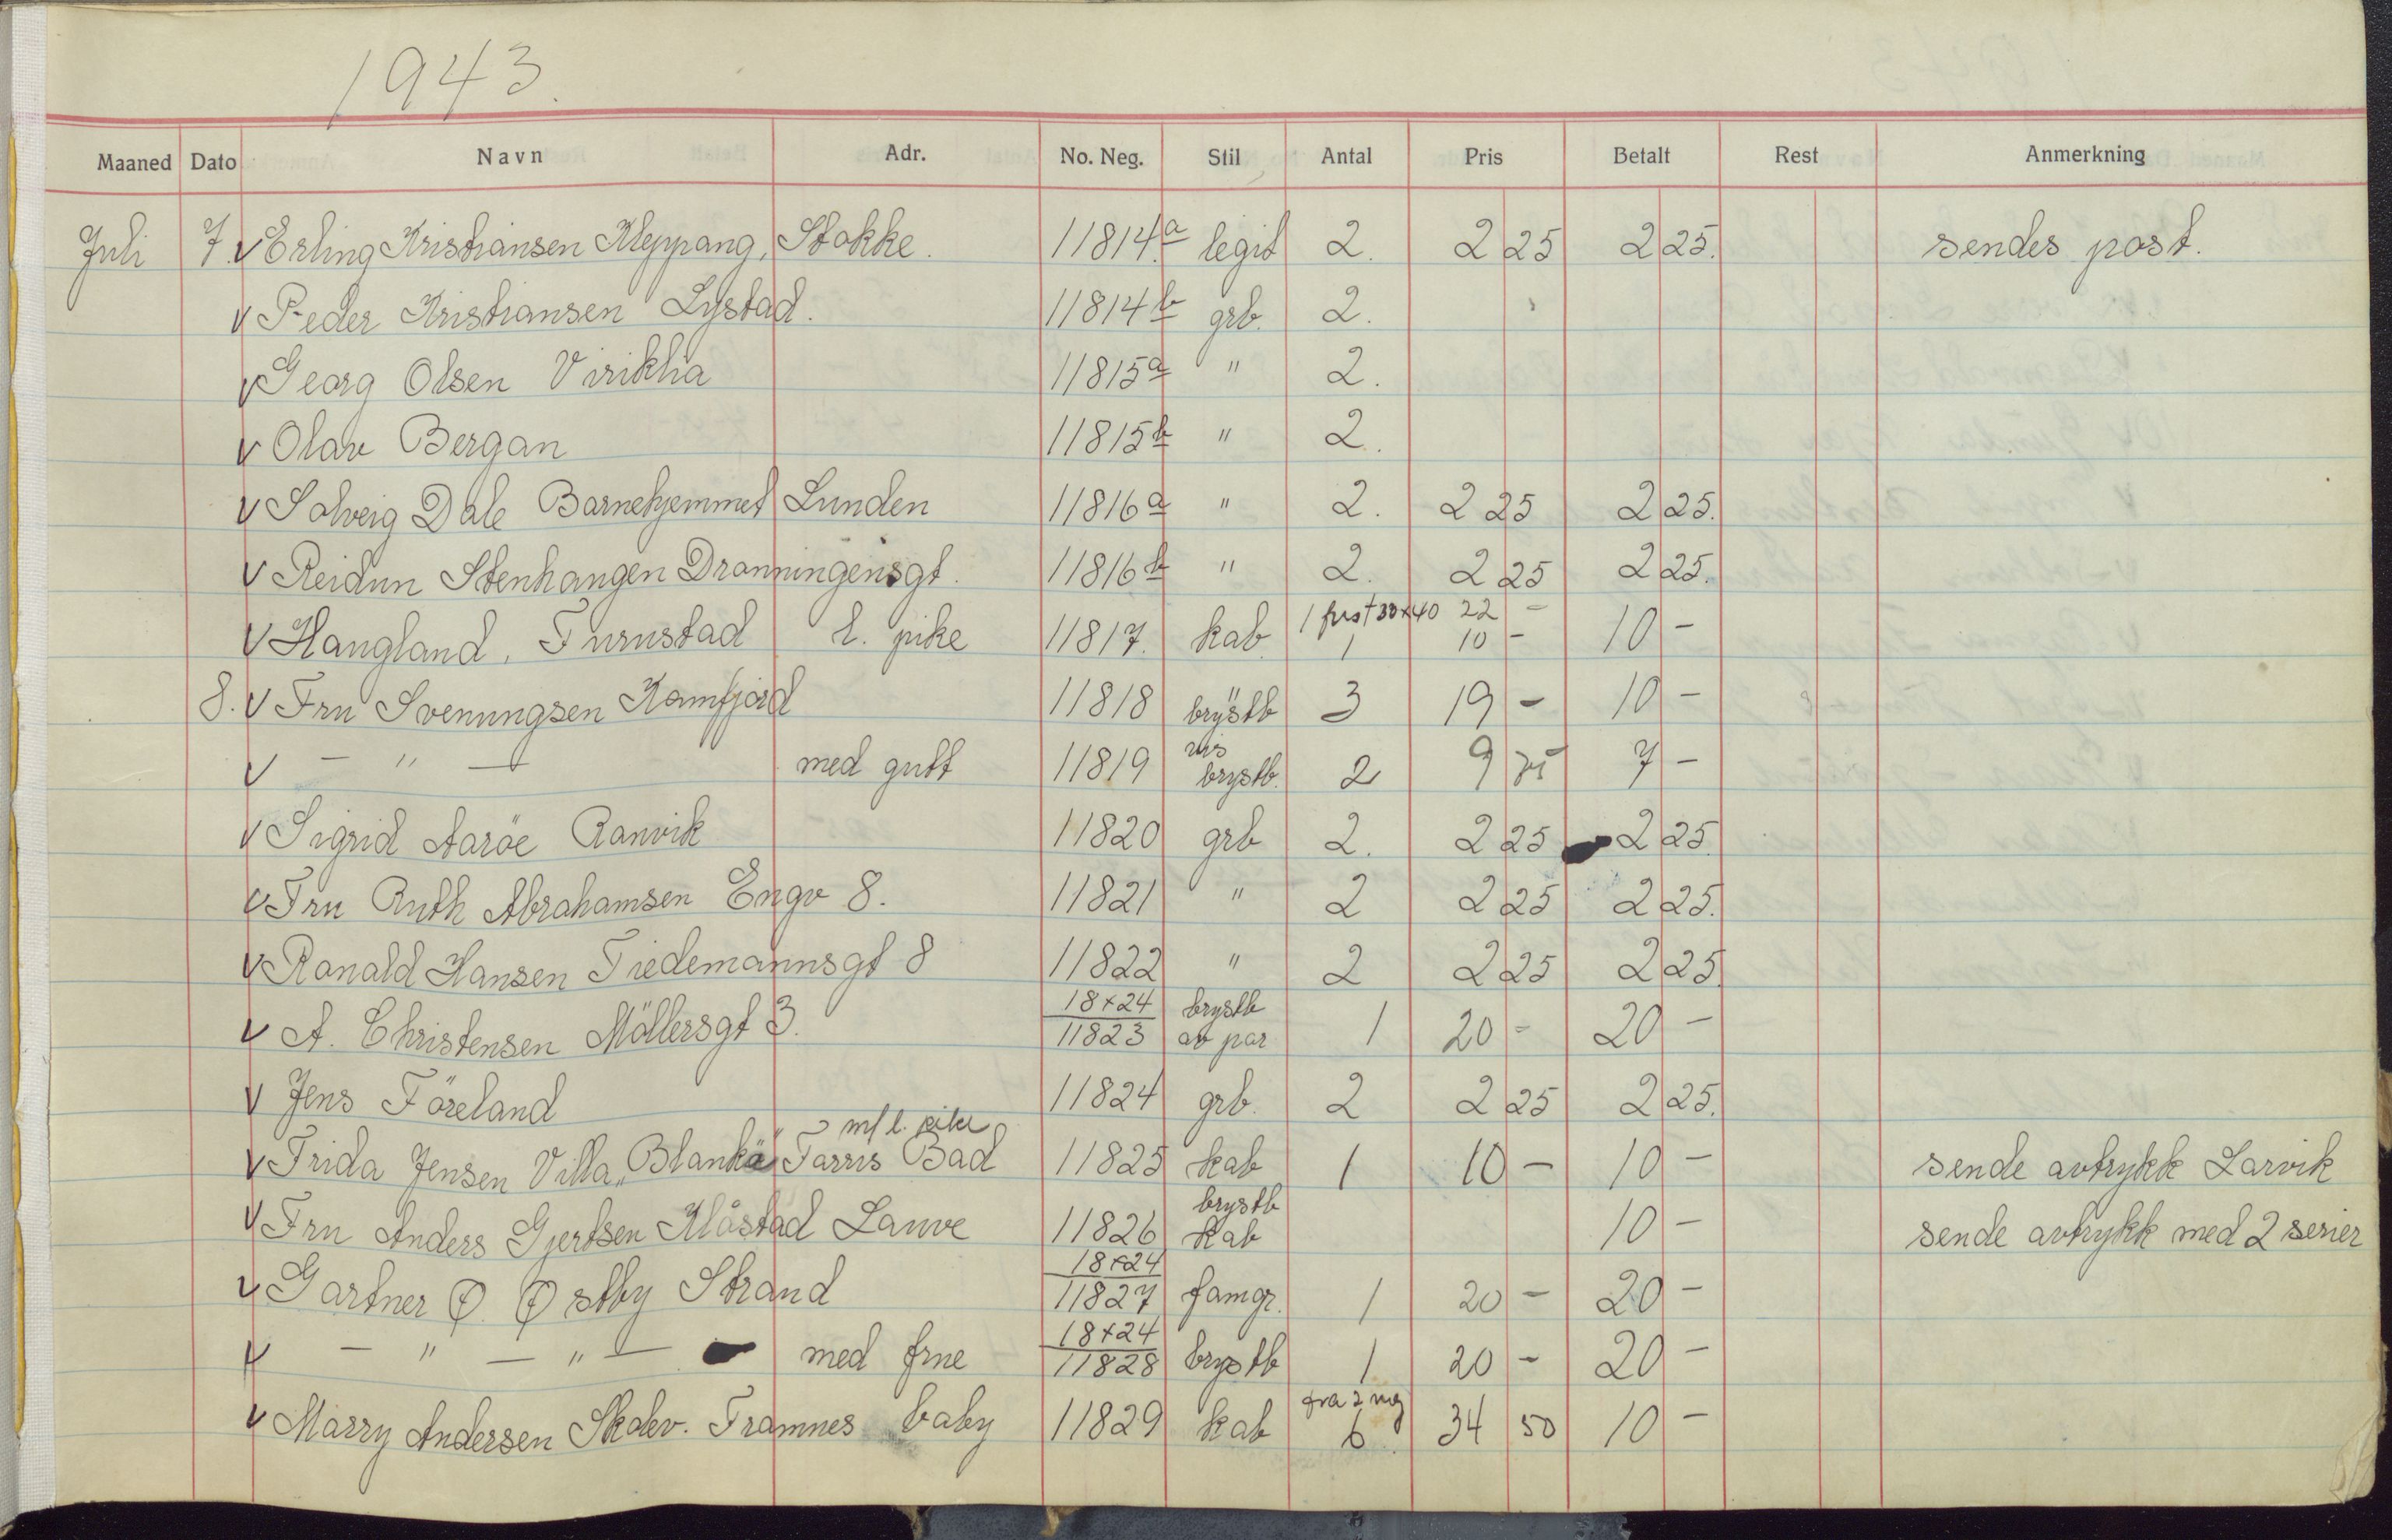 1943.
Maaned Dato Navn Adr. No. Neg. Stil Antal Pris Betalt Rest Anmerkning
Juli 7. v Erling Kristiansen Kleppang, Stokke. 11814.a legit 2. 2 25 2 25. sendes post.
v Peder Kristiansen Lystad. 11814 b grb. 2.
v Georg Olsen Viriklia 11815a " 2.
v Olav Bergan 11815b " 2.
v Solveig Dale Barnehjemmet Lunden 11816a " 2. 2 25 2 25.
v Reidun Stenhaugen Dronningensgt. 11816b " 2. 2 25 2 25.
v Haugland, Furustad l. pike 11817. kab. 1 30x40 22 - 1 10 - 10 -
8. v Fru Svenungsen Kamfjord 11818 brystb 3 19 - 10 -
v - " - med gutt 11819 vis brystb. 2 9 75 7 -
v Sigrid Aaröe Ranvik 11820 grb 2. 2 25 2 25.
v Fru Ruth Abrahamsen Engv 8. 11821 " 2 2 25 2 25.
v Ronald Hansen Tiedemannsgt 8 11822 " 2 2 25 2 25.
v A. Christensen Möllersgt 3. 18x24 11823 brystb av par 1 20 - 20 -
v Jens Föreland 11824 grb. 2 2 25 2 25.
m/ l. pike
v Frida Jensen Villa „Blanka" Farris Bad 11825 kab 1 10 - 10 - sende avtrykk Larvik
v Fru Anders Gjertsen Klåstad Lauve 11826 brystb kab 10 - sende avtrykk med 2 serier
v Gartner Ø. Østby Strand 18x24 11827 famgr. 1 20 - 20 -
v - " - " - med frue 18x24 11828 brystb 1 20 - 20 -
v Marry Andersen Skolev. Framnes baby 11829 kab fra 2 neg 6 34 50 10 -